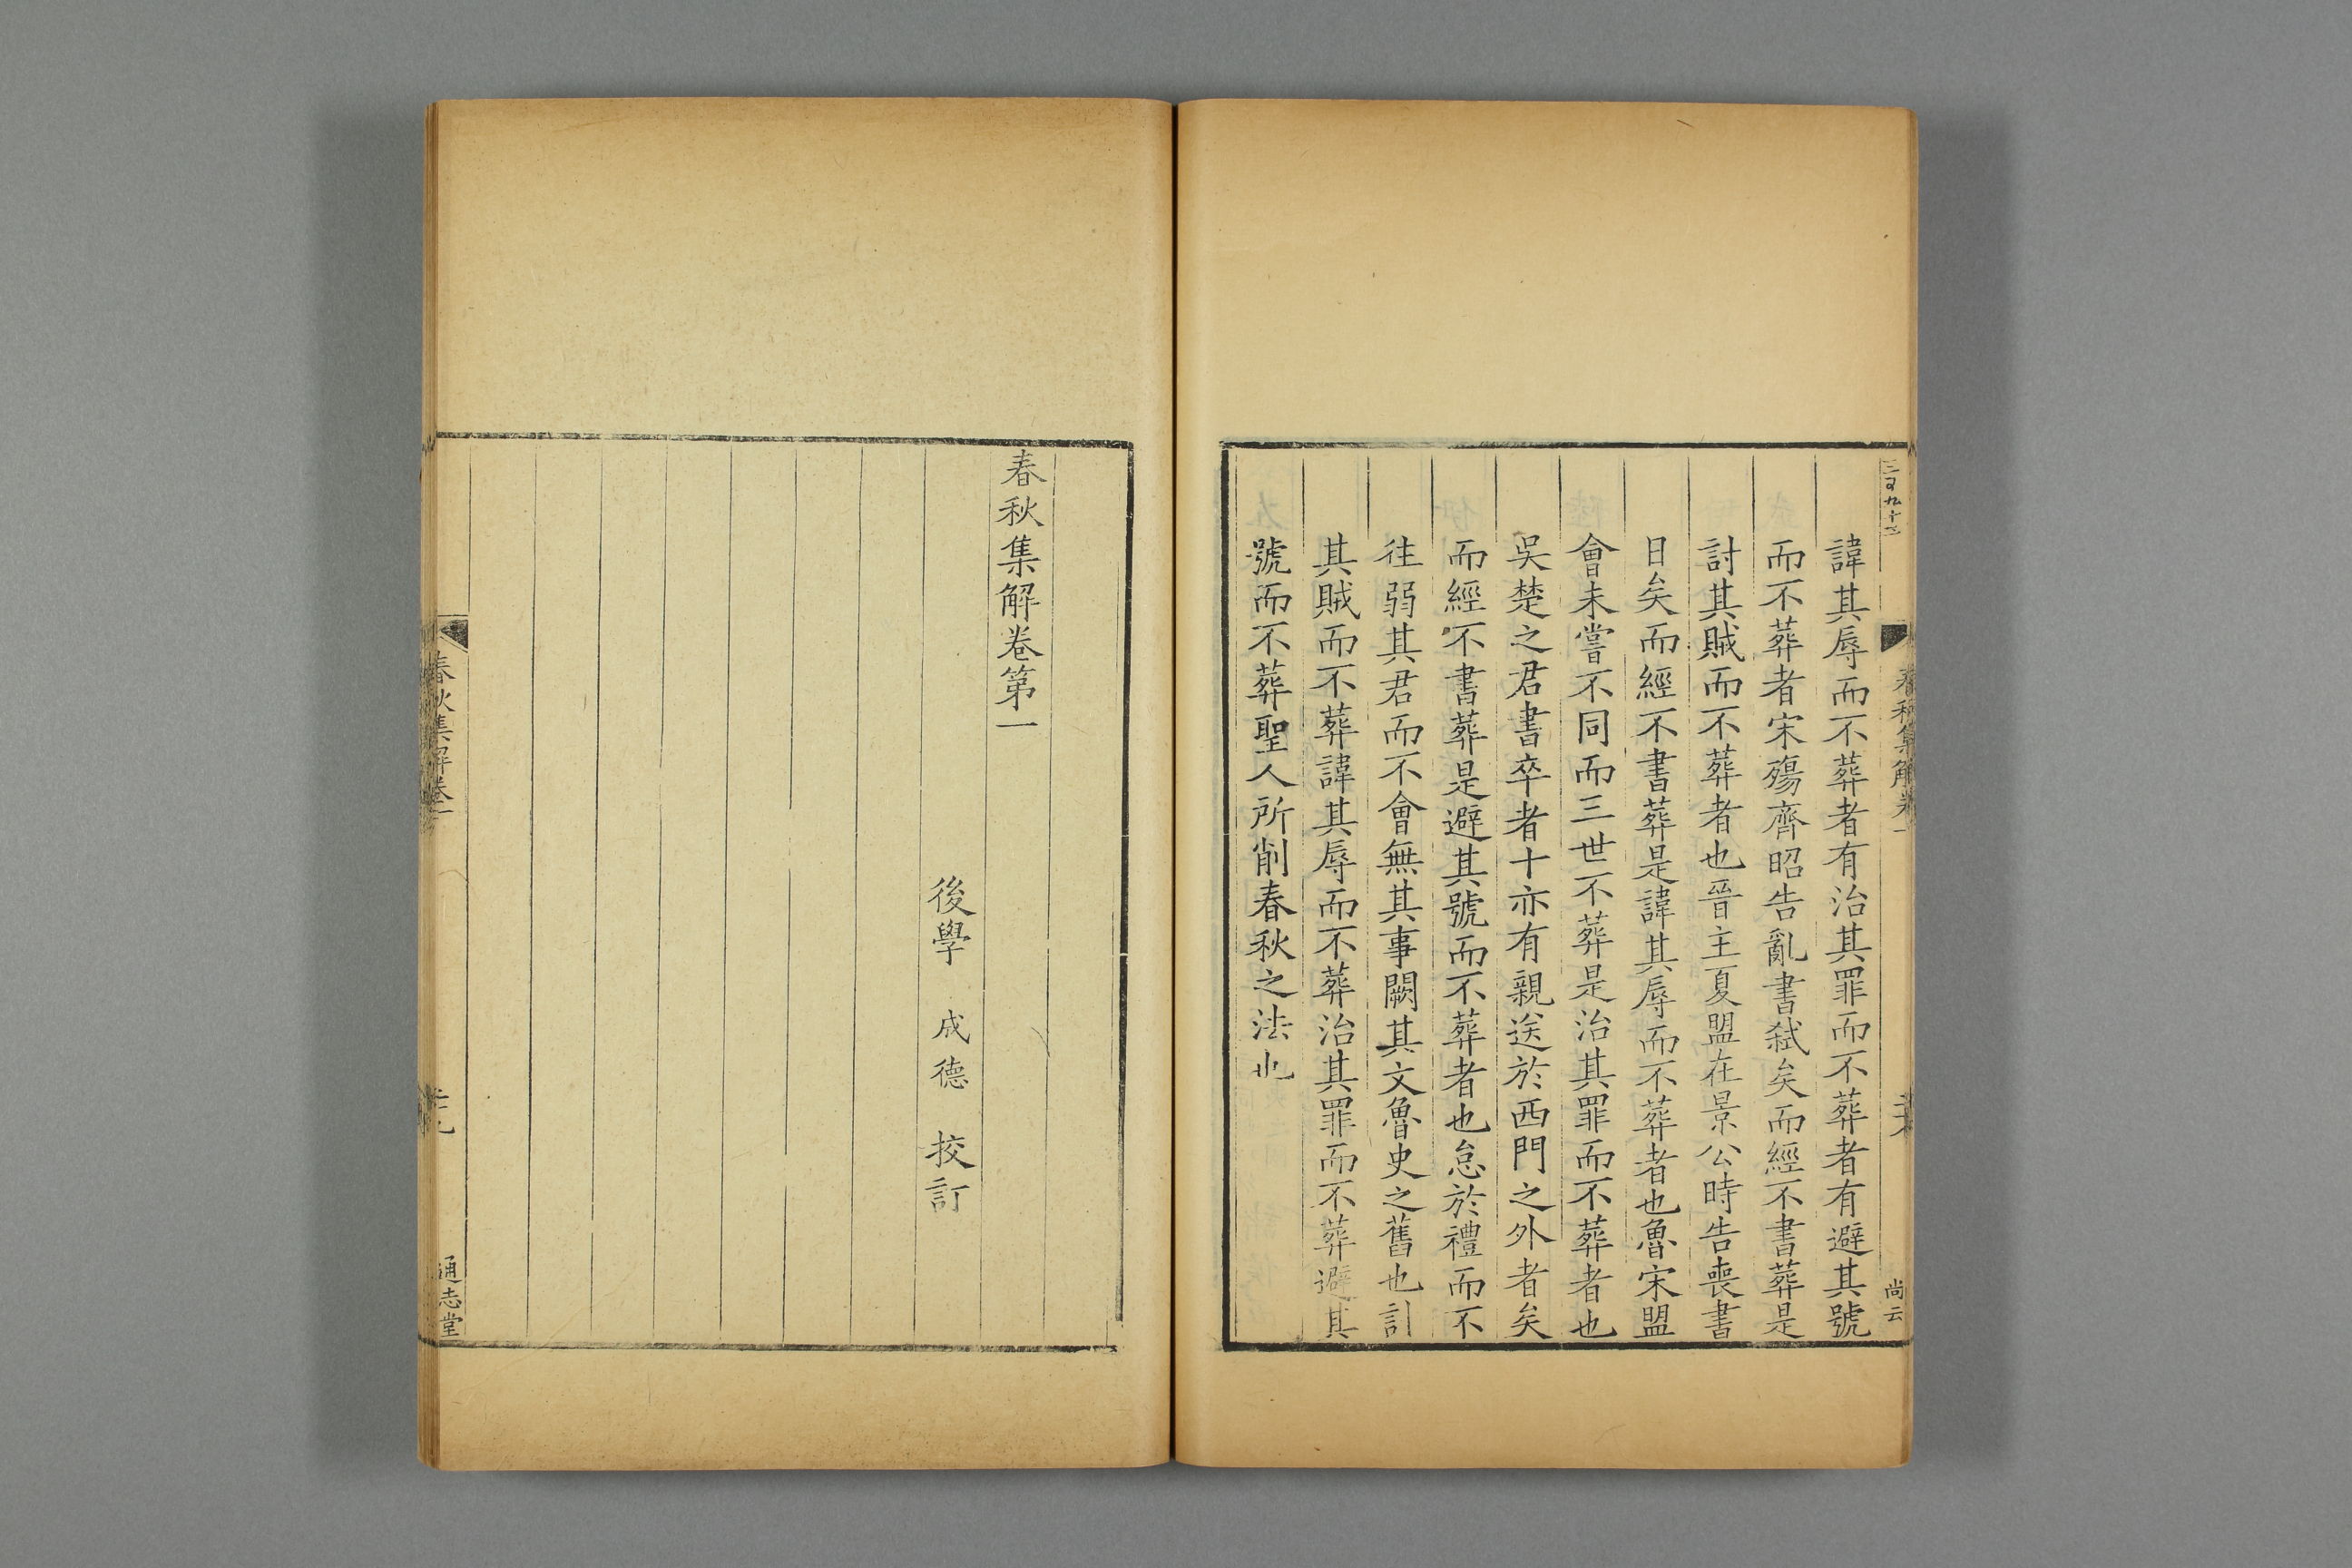 諱其辱而不葬者有治其罪而不葬者有避其號
而不葬者宋殤齊昭告亂書弑矣而經不書葬是
討其賊而不葬者也晉主夏盟在景公時告喪書
日矣而經不書葬是諱其辱而不葬者也魯宋盟
會未嘗不同而三世不葬是治其罪而不葬者也
吳楚之君書卒者十亦有親送於西門之外者矣
而經不書葬是避其號而不葬者也怠於禮而不
往弱其君而不會無其事闕其文魯史之舊也討
其賊而不葬諱其辱而不葬治其罪而不葬避其
號而不葬聖人所削春秋之法也
春秋集解卷一
尚云
春秋集解卷第一
後學 成德 挍訂
春秋集解卷一
通志堂